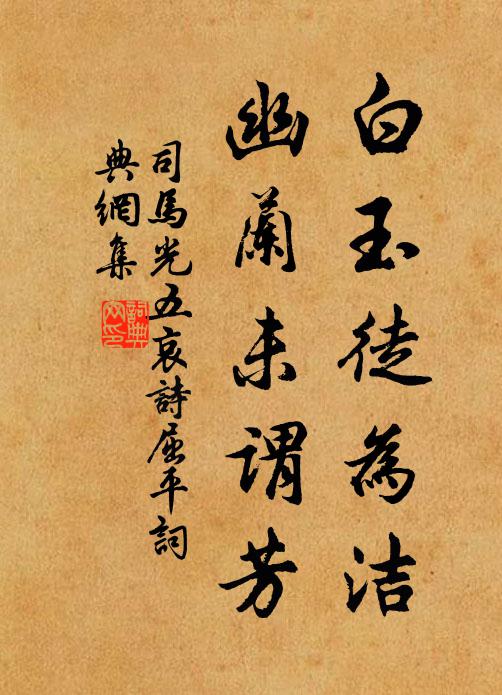 白玉徒為洁
幽蘭未謂芳
司馬光五哀詩屈平詞
典網集
詞典
网印